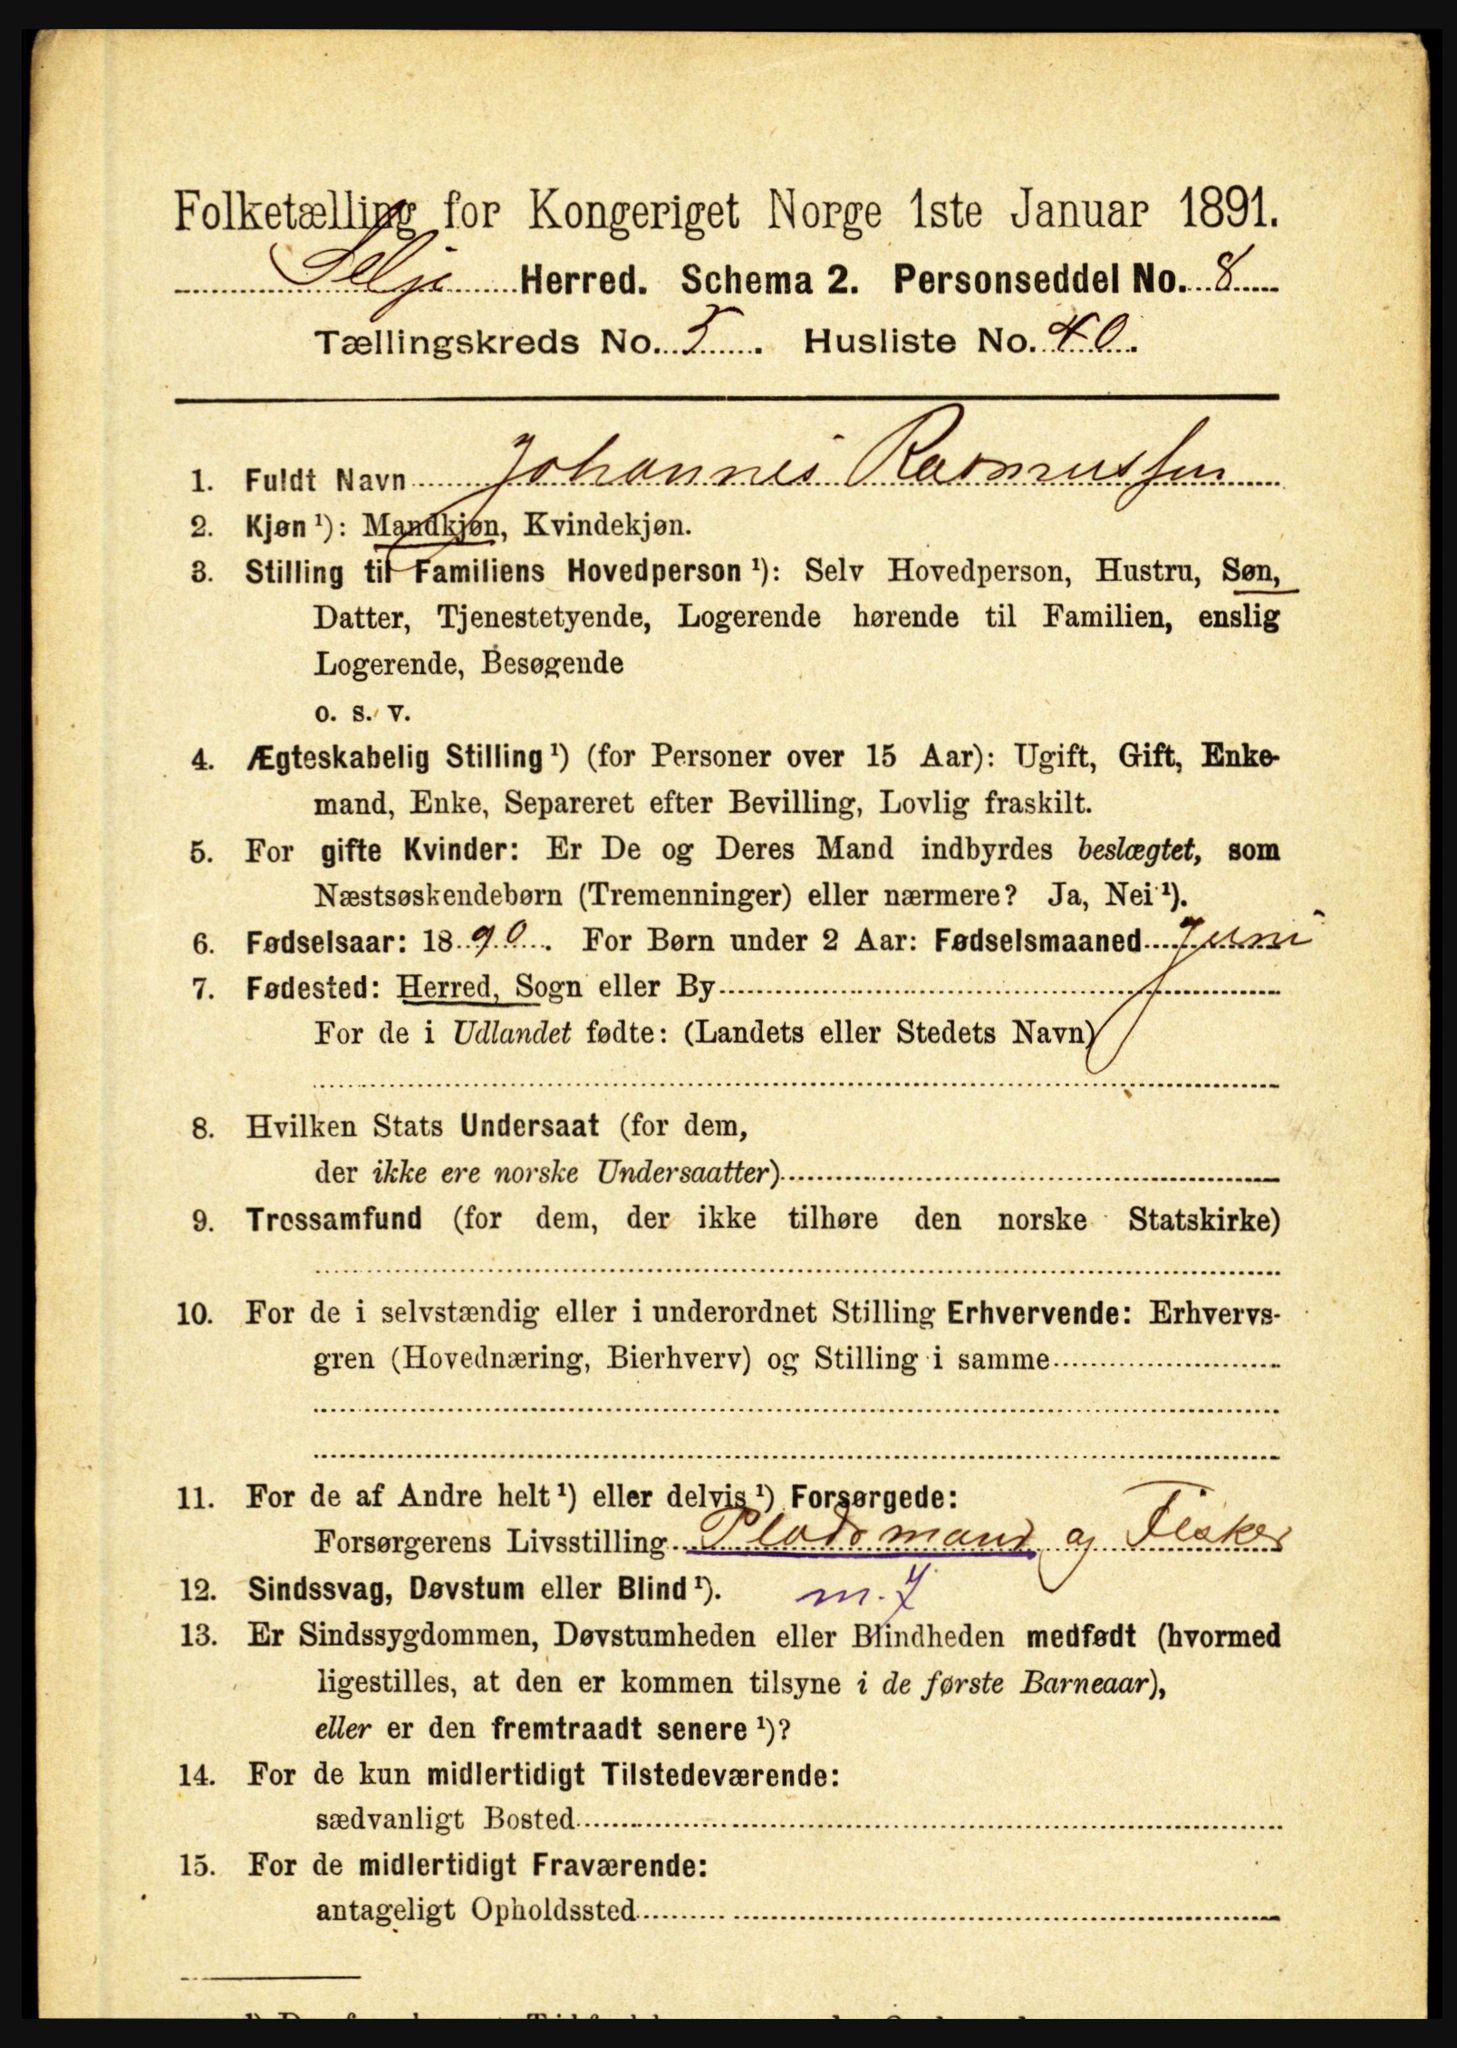 Folketælling for Kongeriget Norge 1ste Januar 1891.
Selje Herred. Schema 2. Personseddel No. 8
Tællingskreds No. 5. Husliste No. 40.
1. Fuldt Navn Johannes Rasmussen
2. Kjøn¹): Mandkjøn, Kvindekjøn.
3. Stilling til Familiens Hovedperson¹): Selv Hovedperson, Hustru, Søn,
Datter, Tjenestetyende, Logerende hørende til Familien, enslig
Logerende, Besøgende
o. s. v.
4. Ægteskabelig Stilling¹) (for Personer over 15 Aar): Ugift, Gift, Enke-
mand, Enke, Separeret efter Bevilling, Lovlig fraskilt.
5. For gifte Kvinder: Er De og Deres Mand indbyrdes beslægtet, som
Næstsøskendebørn (Tremenninger) eller nærmere? Ja, Nei¹).
6. Fødselsaar: 1890. For Børn under 2 Aar: Fødselsmaaned Juni
7. Fødested: Herred, Sogn eller By
For de i Udlandet fødte: (Landets eller Stedets Navn)
8. Hvilken Stats Undersaat (for dem,
der ikke ere norske Undersaatter)
9. Trossamfund (for dem, der ikke tilhøre den norske Statskirke)
10. For de i selvstændig eller i underordnet Stilling Erhvervende: Erhvervs-
gren (Hovednæring, Bierhverv) og Stilling i samme
11. For de af Andre helt¹) eller delvis¹) Forsørgede:
Forsørgerens Livsstilling Pladsmand og Fisker
12. Sindssvag, Døvstum eller Blind¹). m. 7
13. Er Sindssygdommen, Døvstumheden eller Blindheden medfødt (hvormed
ligestilles, at den er kommen tilsyne i de første Barneaar),
eller er den fremtraadt senere¹)?
14. For de kun midlertidigt Tilstedeværende:
sædvanligt Bosted
15. For de midlertidigt Fraværende:
antageligt Opholdssted